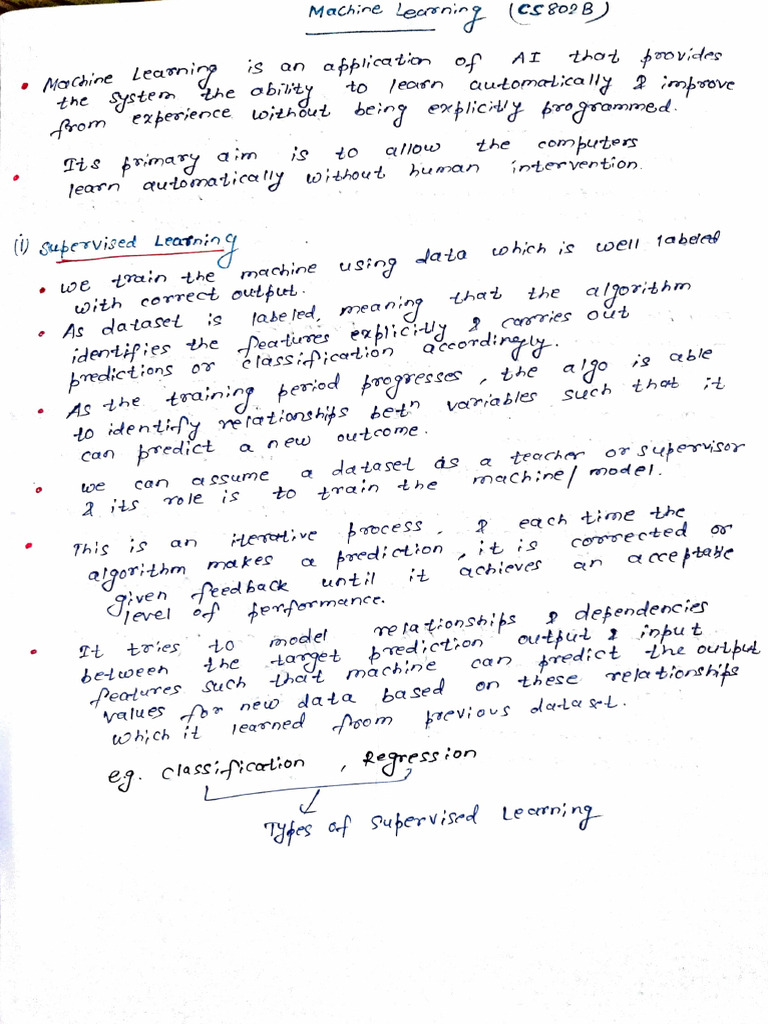 Machine Learning (CS802B)
• Machine Learning is an application of AI that provides
the system the ability to learn automatically & improve
from experience without being explicitly programmed.
• Its primary aim is to allow the computers
learn automatically without human intervention.
(i) Supervised Learning
• we train the machine using data which is well labeled
with correct output.
• As dataset is labeled, meaning that the algorithm
identifies the features explicitly & carries out
predictions or classification accordingly.
• As the training period progresses, the algo is able
to identify relationships betⁿ variables such that it
can predict a new outcome.
• we can assume a dataset as a teacher or supervisor
& its role is to train the machine/model.
• This is an iterative process, & each time the
algorithm makes a prediction, it is corrected or
given feedback until it achieves an acceptable
level of performance.
• It tries to model relationships & dependencies
between the target prediction output & input
features such that machine can predict the output
values for new data based on these relationships
which it learned from previous dataset.
e.g. Classification, Regression
Types of Supervised Learning